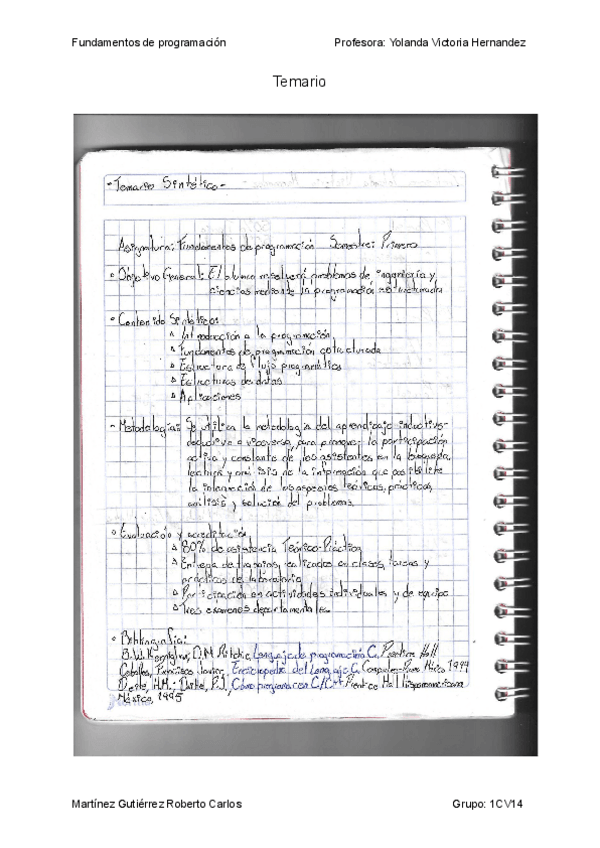 Fundamentos de programación Profesora: Yolanda Victoria Hernandez
Temario
-Temario Sintético-
Asignatura: Fundamentos de programación Semestre: Primero
Objetivo General: El alumno resolverá problemas de ingeniería y
ciencias mediante la programación estructurada
Contenido Sintético:
Introducción a la programación
Fundamentos de programación estructurada
Estructura de flujo programático
Estructuras de datos
Aplicaciones
-Metodología: Se utiliza la metodología del aprendizaje inductivo-
deductivo y viceversa, para promover la participación
activa y constante de los asistentes en la búsqueda,
lectura y análisis de la información que posibilite
la interacción de los aspectos teóricos, prácticos,
análisis y solución del problema.
Evaluación y acreditación
80% de asistencia Teórico-Práctica
Entrega de trabajos, realizados en clases, tareas y
prácticas de laboratorio
Participación en actividades individuales y de equipo
Tres examenes departamentales.
Bibliografía:
B.W. D.M. Ritchie, Lenguaje de programación C, Prentice Hall
Ceballos, Francisco Javier, Enciclopedia del Lenguaje C, 1994
H.M.: P.J, Cómo programar en C/C++ Prentice Hall Hispanoamericana
México, 1995
Martínez Gutiérrez Roberto Carlos Grupo: 1CV14